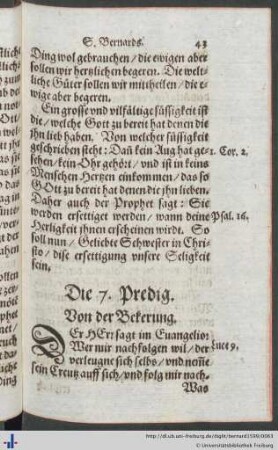 S. Bernards. 43
Ding wol gebrauchen / die ewigen aber
sollen wir hertzlichen begeren. Die welt-
liche Güter sollen wir mittheilen / die e-
wige aber begeren.
Ein grosse und vilfältige süssigkeit ist
die / welche Gott zu bereit hat denen die
ihn lieb haben. Von welcher süssigkeit
geschrieben steht: Dañ kein Aug hat ge- 1. Cor. 2.
sehen / kein Ohr gehört / vnd ist in keins
Menschen Hertzen einkommen / das so
GOtt zu bereit hat denen die jhn lieben.
Daher auch der Prophet sagt: Sie
werden ersettiget werden / wann deine Psal. 16.
Herligkeit jhnen erscheinen wirdt. So
soll nun / Geliebte Schwester in Chri-
sto / dise ersettigung vnsere Seligkeit
sein.
Die 7. Predig.
Von der Bekerung.
DEr HErr sagt im Euangelio:
Wer mir nachfolgen wil / der Luce 9.
verleugne sich selbs / vnd neme
sein Creutz auff sich / vnd folg mir nach.
Was
http://dl.ub.uni-freiburg.de/diglit/bernard1599/0083
© Universitätsbibliothek Freiburg